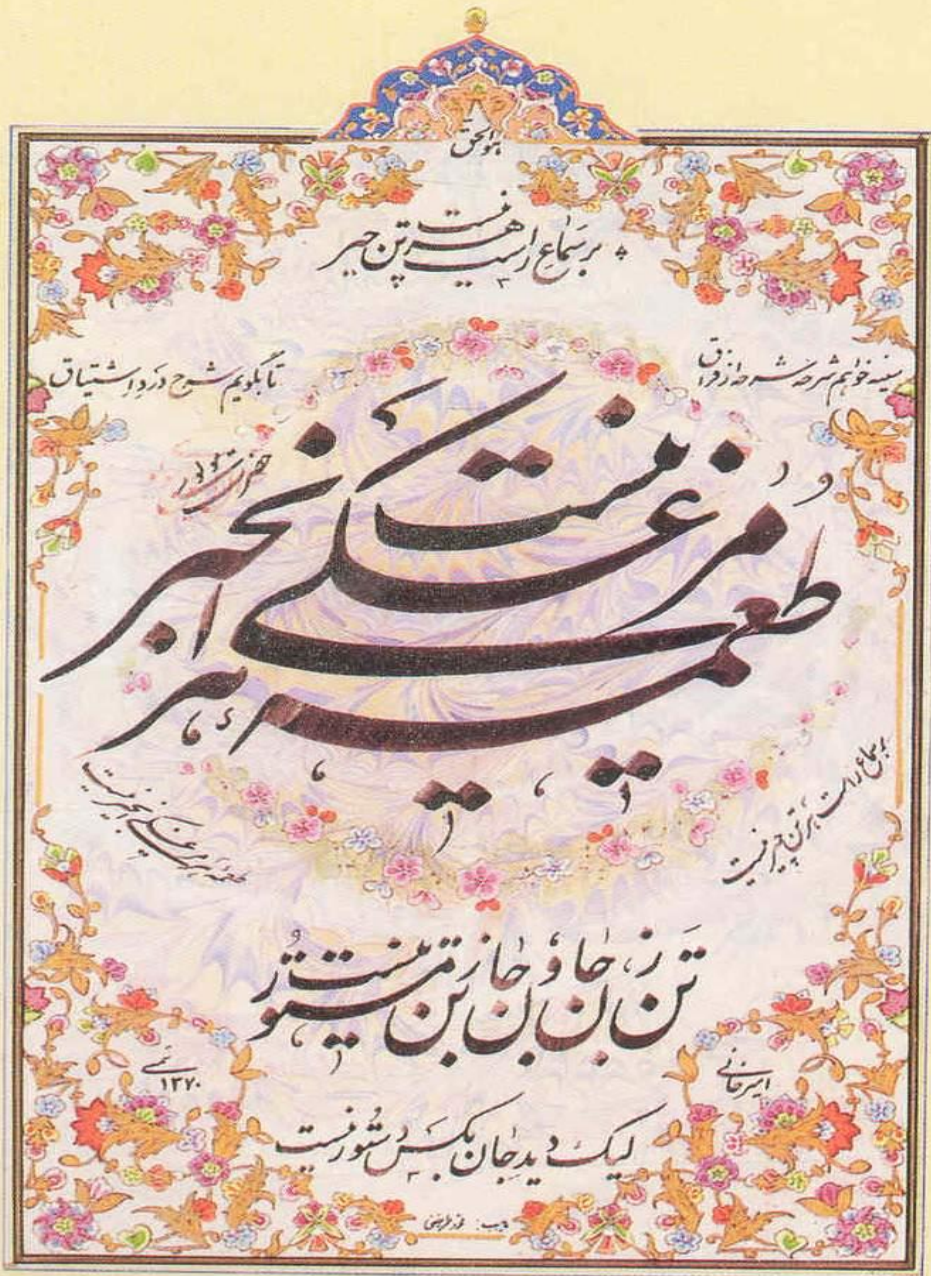 هوالحق
بر سماع راست هر تن چیر نیست
سینه خواهم شرحه شرحه از فراق
تا بگویم شرح درد اشتیاق
طعمهٔ هر مرغکی انجیر نیست
بر سماع راست هر تن چیر نیست
طعمهٔ هر مرغکی انجیر نیست
تن ز جان و جان ز تن مستور نیست
امیرخانی
۱۳۷۰ شمسی
لیک کس دید جان دستور نیست
تذهیب: